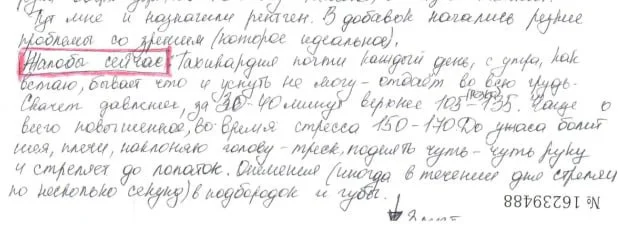 Тут мне и назначили рентген. В добавок начались резкие
проблемы со зрением (которое идеальное).
Жалобы сейчас: Тахикардия почти каждый день, с утра, как
встаю, бывает что и уснуть не могу - отдаёт во всю грудь.
Скачет давление, за 30-40 минут верхнее 105-135. Чаще
всего повышенное, во время стресса 150-170. До ужаса болит
шея, плечи, наклоняю голову - треск, поднять чуть-чуть руку
и стреляет до лопаток. Онемения (иногда в течение дня стреляет
по несколько секунд) в подбородок и губы.
№ 16239488